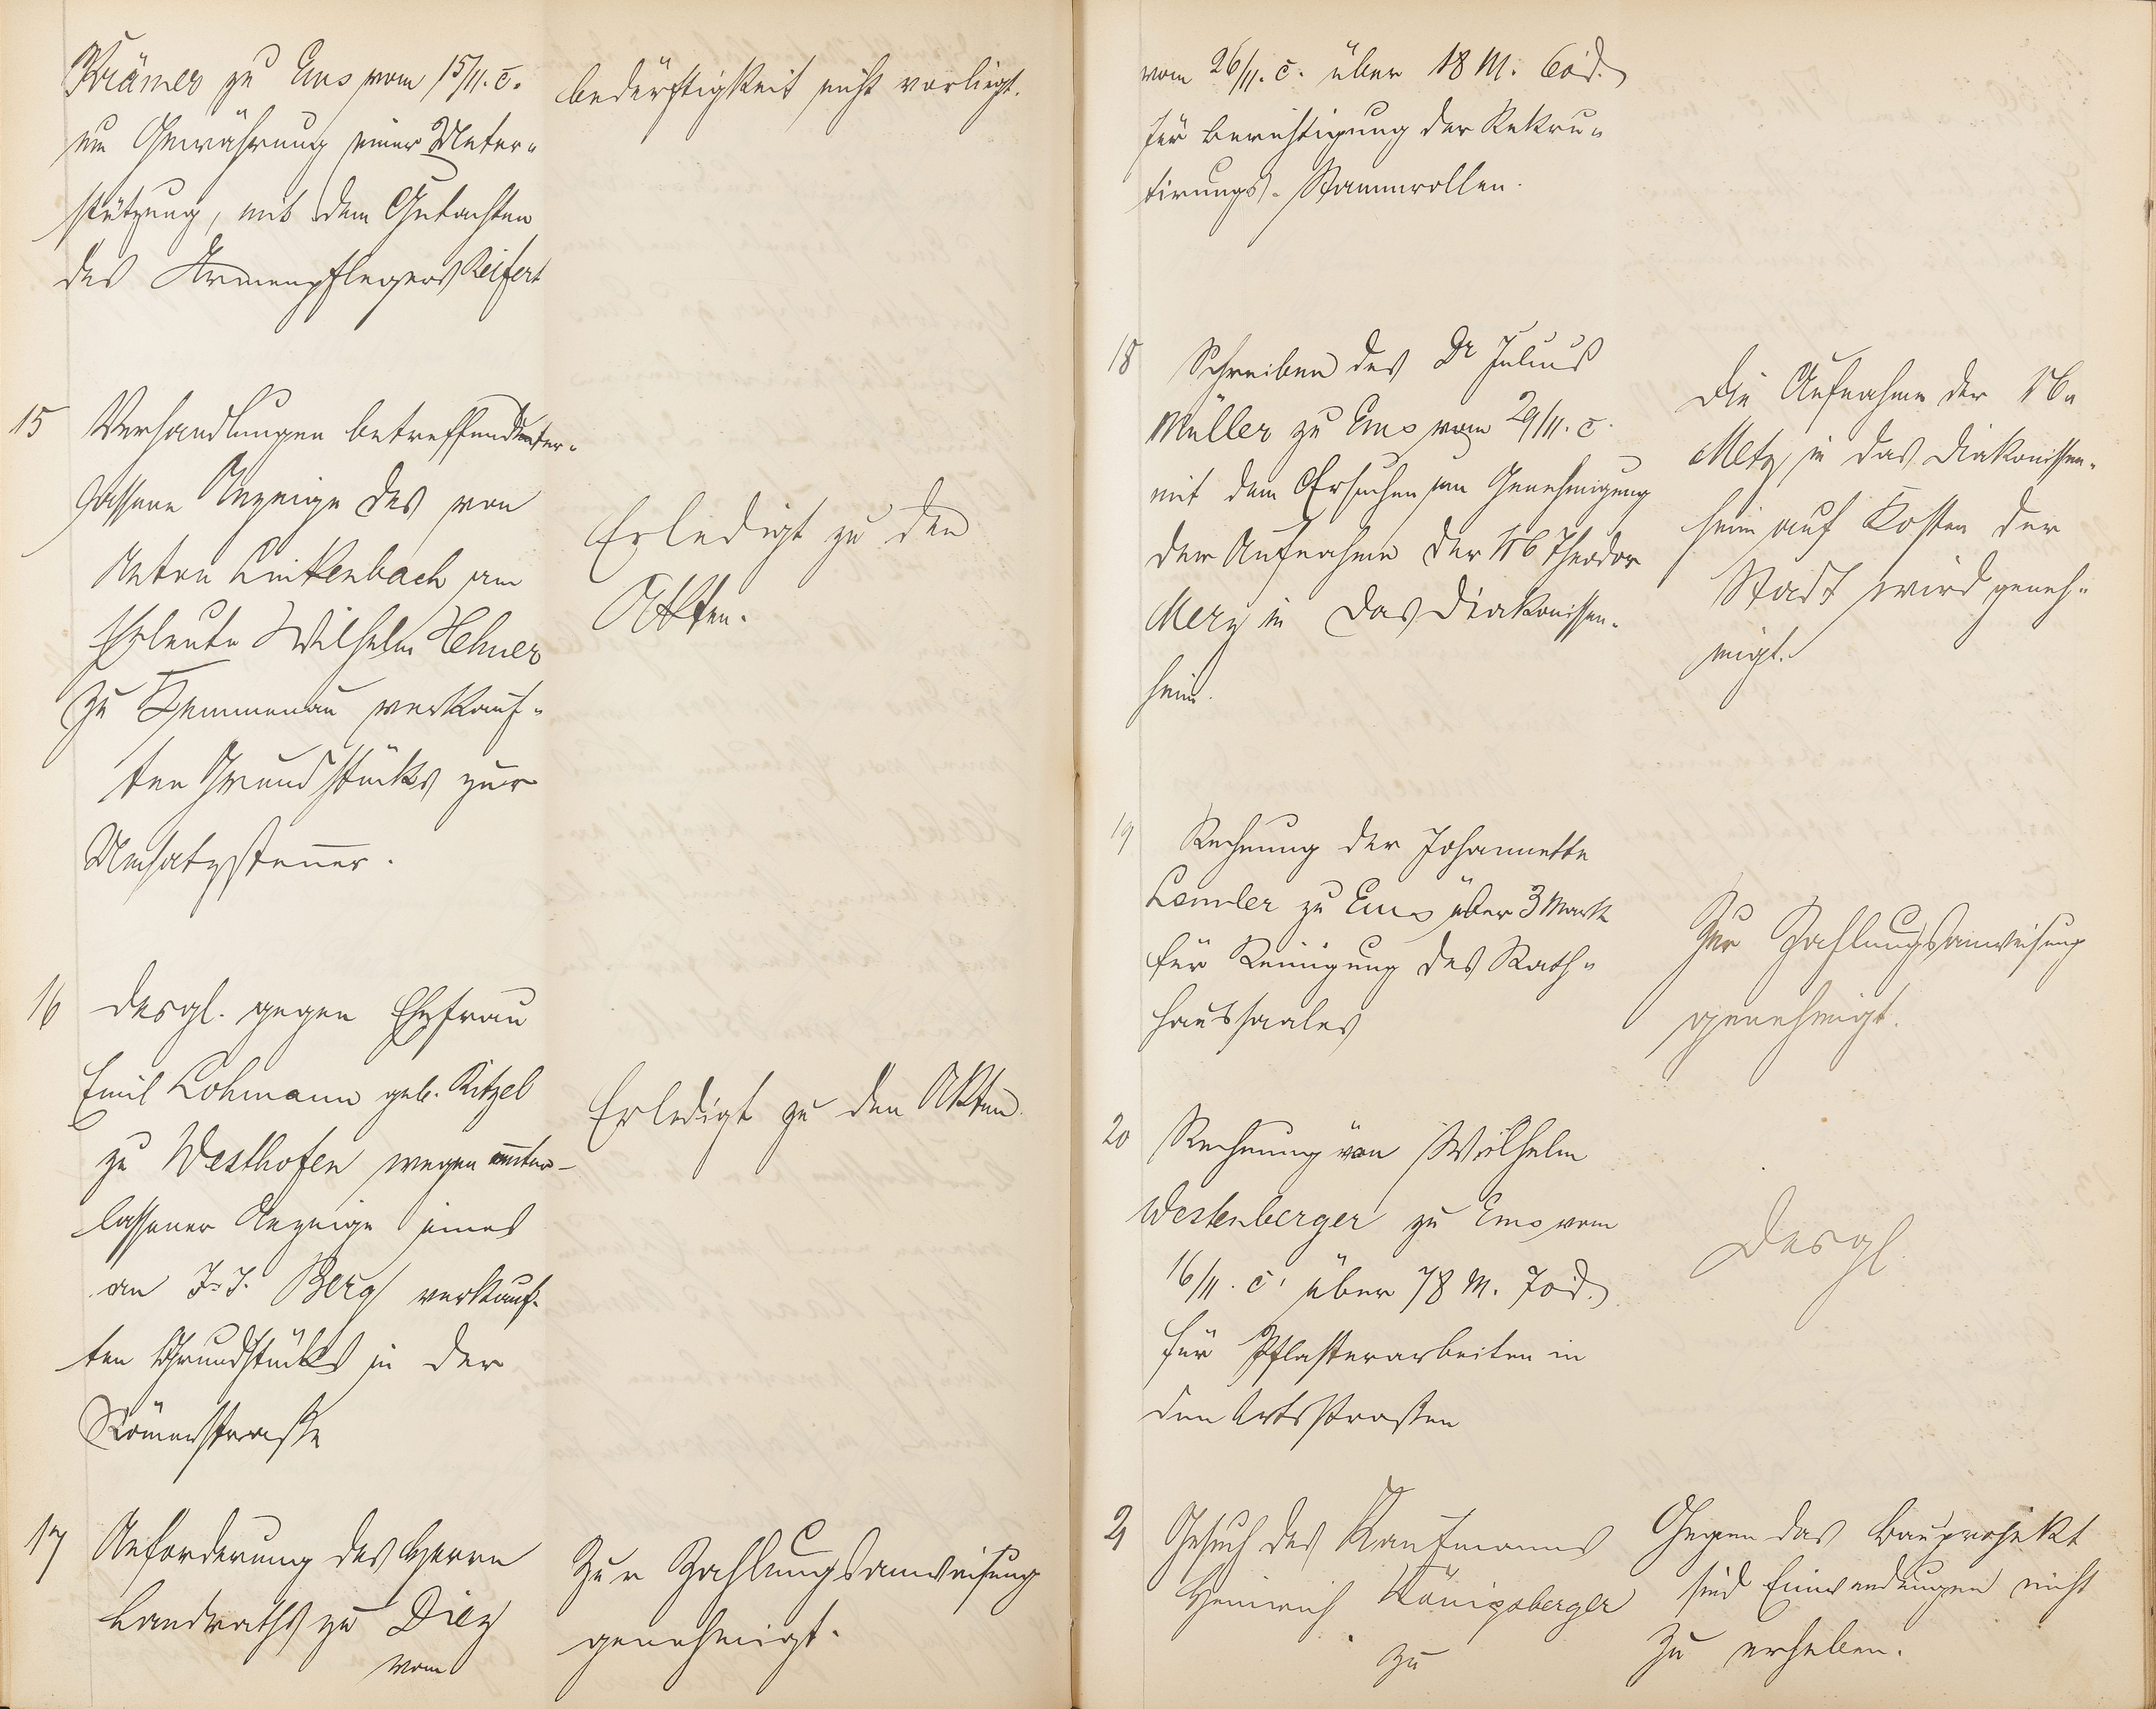 Krämer zu Ems vom 15/11. c.
um Gewährung einer Unter-
stützung, mit dem Gutachten
des Armenpflegers Seifert
bedürftigkeit nicht vorliegt.
15 Verhandlungen betreffend unter-
lassene Anzeige des von
Anton Linkenbach an
Eheleute Wilhelm Hehner
zu Kemmenau verkauf-
ten Grundstücks zur
Umsatzsteuer.
Erledigt zu den
Akten.
16 desgl. gegen Ehefrau
Emil Lohmann geb. Kitzel
zu Westhofen wegen unter-
lassener Anzeige eines
an J. J. Berg verkauf-
ten Grundstücks in der
Römerstraße
Erledigt zu den Akten.
17 Anforderung des Herrn
Landraths zu Diez
vom
Zur Zahlungsanweisung
genehmigt.
vom 26/11. c. über 18 M. 60 d.
für Berichtigung der Rekru-
tirungs-Stammrollen.
18 Schreiben des Dr Julius
Müller zu Ems vom 29/11. c.
mit dem Ersuchen um Genehmigung
der Aufnahme der Theodor
in das Diakonissen-
heim.
Die Aufnahme der
Metz in das Diakonissen-
heim auf Kosten der
Stadt wird geneh-
migt.
19 Rechnung der Johannette
zu Ems über 3 Mark
für Reinigung des Rath-
haussaales
Zur Zahlungsanweisung
genehmigt.
20 Rechnung von Wilhelm
Westenberger zu Ems vom
16/11. c. über 78 M. 70 d.
für Pflasterarbeiten in
den Ortsstraßen
desgl.
21 Gesuch des Kaufmanns
Heinrich Königsberger
zu
Gegen das Bauprojekt
sind Einwendungen nicht
zu erheben.